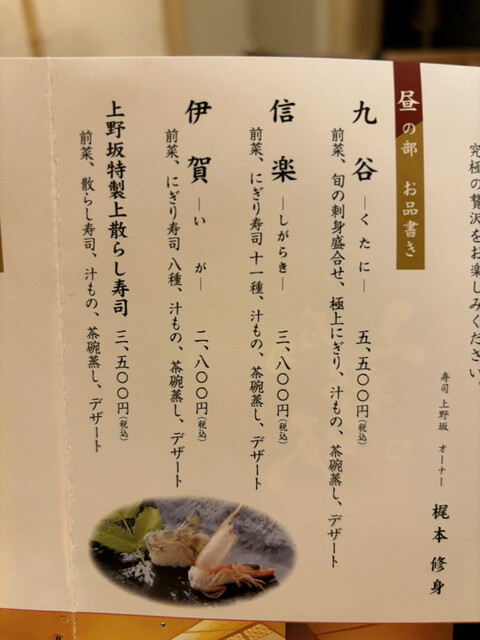 究極の贅沢をお楽しみください。
寿司 上野坂 オーナー 梶本 修身
昼の部 お品書き
九谷 ―くたに― 五、五〇〇円(税込)
前菜、旬の刺身盛合せ、極上にぎり、汁もの、茶碗蒸し、デザート
信楽 ―しがらき― 三、八〇〇円(税込)
前菜、にぎり寿司 十一種、汁もの、茶碗蒸し、デザート
伊賀 ―いが― 二、八〇〇円(税込)
前菜、にぎり寿司 八種、汁もの、茶碗蒸し、デザート
上野坂特製上散らし寿司 三、五〇〇円(税込)
前菜、散らし寿司、汁もの、茶碗蒸し、デザート